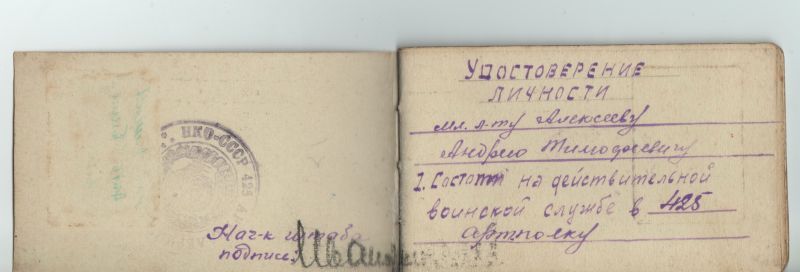 НКО-СССР 425
Нач-к штаба
подпись:
УДОСТОВЕРЕНИЕ
ЛИЧНОСТИ
мл. л-ту Алексееву
Андрею Тимофеевичу
1. Состоит на действительной
воинской службе в 425
артполку